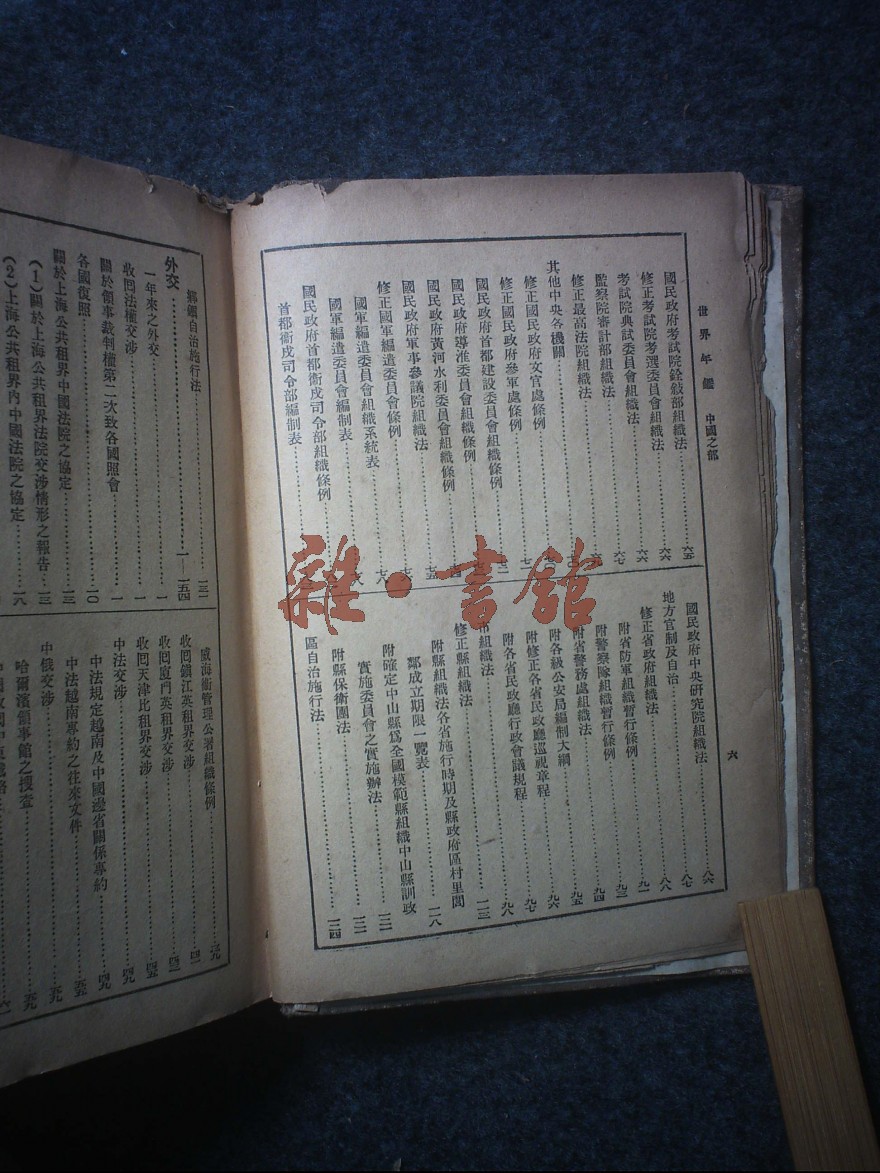 世界年鑑 中國之部
六
國民政府考試院銓敍部組織法……六五
修正考試院考選委員會組織法……六六
考試院典試委員會組織法……六七
監察院審計部組織法
修正最高法院組織法
其他中央各機關
修正國民政府文官處條例
修正國民政府參軍處條例
國民政府首都建設委員會組織條例
國民政府導淮委員會組織條例
國民政府黃河水利委員會組織條例
國民政府軍事參議院組織法
修正國軍編遣委員會條例……七八
國軍編遣委員會組織系統表
國軍編遣委員會編制表
國民政府首都衞戍司令部組織條例
首都衞戍司令部編制表
國民政府中央研究院組織法……八六
地方官制及自治……八七
修正省政府組織法……八八
附省防軍組織暫行條例……九一
附警察隊組織暫行條例……九三
附省警務處組織法……九四
附各級公安局編制大綱……九五
附修正各省民政廳巡視章程……九六
附各省民政廳行政會議規程……九七
市組織法……九八
修正縣組織法……一一三
附縣組織法各省施行時期及縣政府區村里閭
鄰成立期限一覽表……一一八
附確定中山縣爲全國模範縣組織中山縣訓政
實施委員會之實施辦法……一二一
附縣保衞團法……一二二
區自治施行法……一二四
鄉鎭自治施行法……一三一
外交……一—一五四
一年來之外交……一
收回法權交涉……一
關於領事裁判權第二次致各國照會……一
各國復照……一〇
關於上海公共租界中國法院之協定……一三
(1)關於上海公共租界法院交涉情形之報告……一三
(2)上海公共租界內中國法院之協定……一八
威海衞管理公署組織條例
收回鎭江英租界交涉
收回廈門英租界交涉
收回天津比租界交涉
中法交涉
中法規定越南及中國邊省關係專約
中法越南專約之往來文件
中俄交涉
哈爾濱領事館之搜查
雜·書館